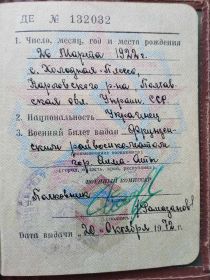 ДЕ № 132032
1. Число, месяц, год и место рождения
26 Марта 1922 г.
с. Холодная-Плесо,
Карловского р-на Полтав-
ская обл. Украин. ССР.
2. Национальность Украинец
3. Военный билет выдан Фрунзен-
ским райвоенкоматом
гор. Алма-Аты
(город, область, край, республика)
ВОЕННЫЙ КОМИССАР
Полковник
Рамазанов
Дата выдачи „20" Октября 1972 г.